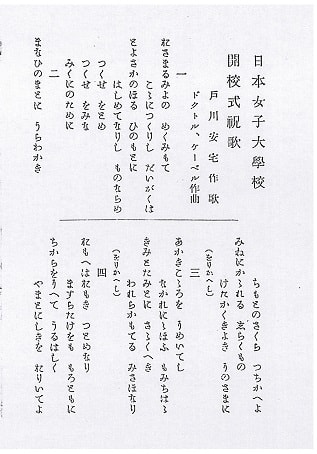 日本女子大學校
開校式祝歌
戸川安宅作歌
ドクトル、ケーベル作曲
一
おさまるみよの めくみもて
こゝにつくりし だいがくは
とよさかのほる ひのもとに
はしめてなりし ものならめ
つくせ をとめ
つくせ をみな
みくにのために
二
まなひのまとに うちわかき
ちもとのさくら つちかへよ
みねにかゝれる しらくもの
けたかくきよき そのさまに
(をりかへし)
三
あかきこゝろを うめいてし
なかれにゝほふ もみちはゝ
きみとたみとに さゝくへき
われらかもてる みさほなり
(をりかへし)
四
おもへはおもき つとめなり
ますらたけをも もろともに
ちからをそへて うるはしく
やまとにしきを おりいてよ